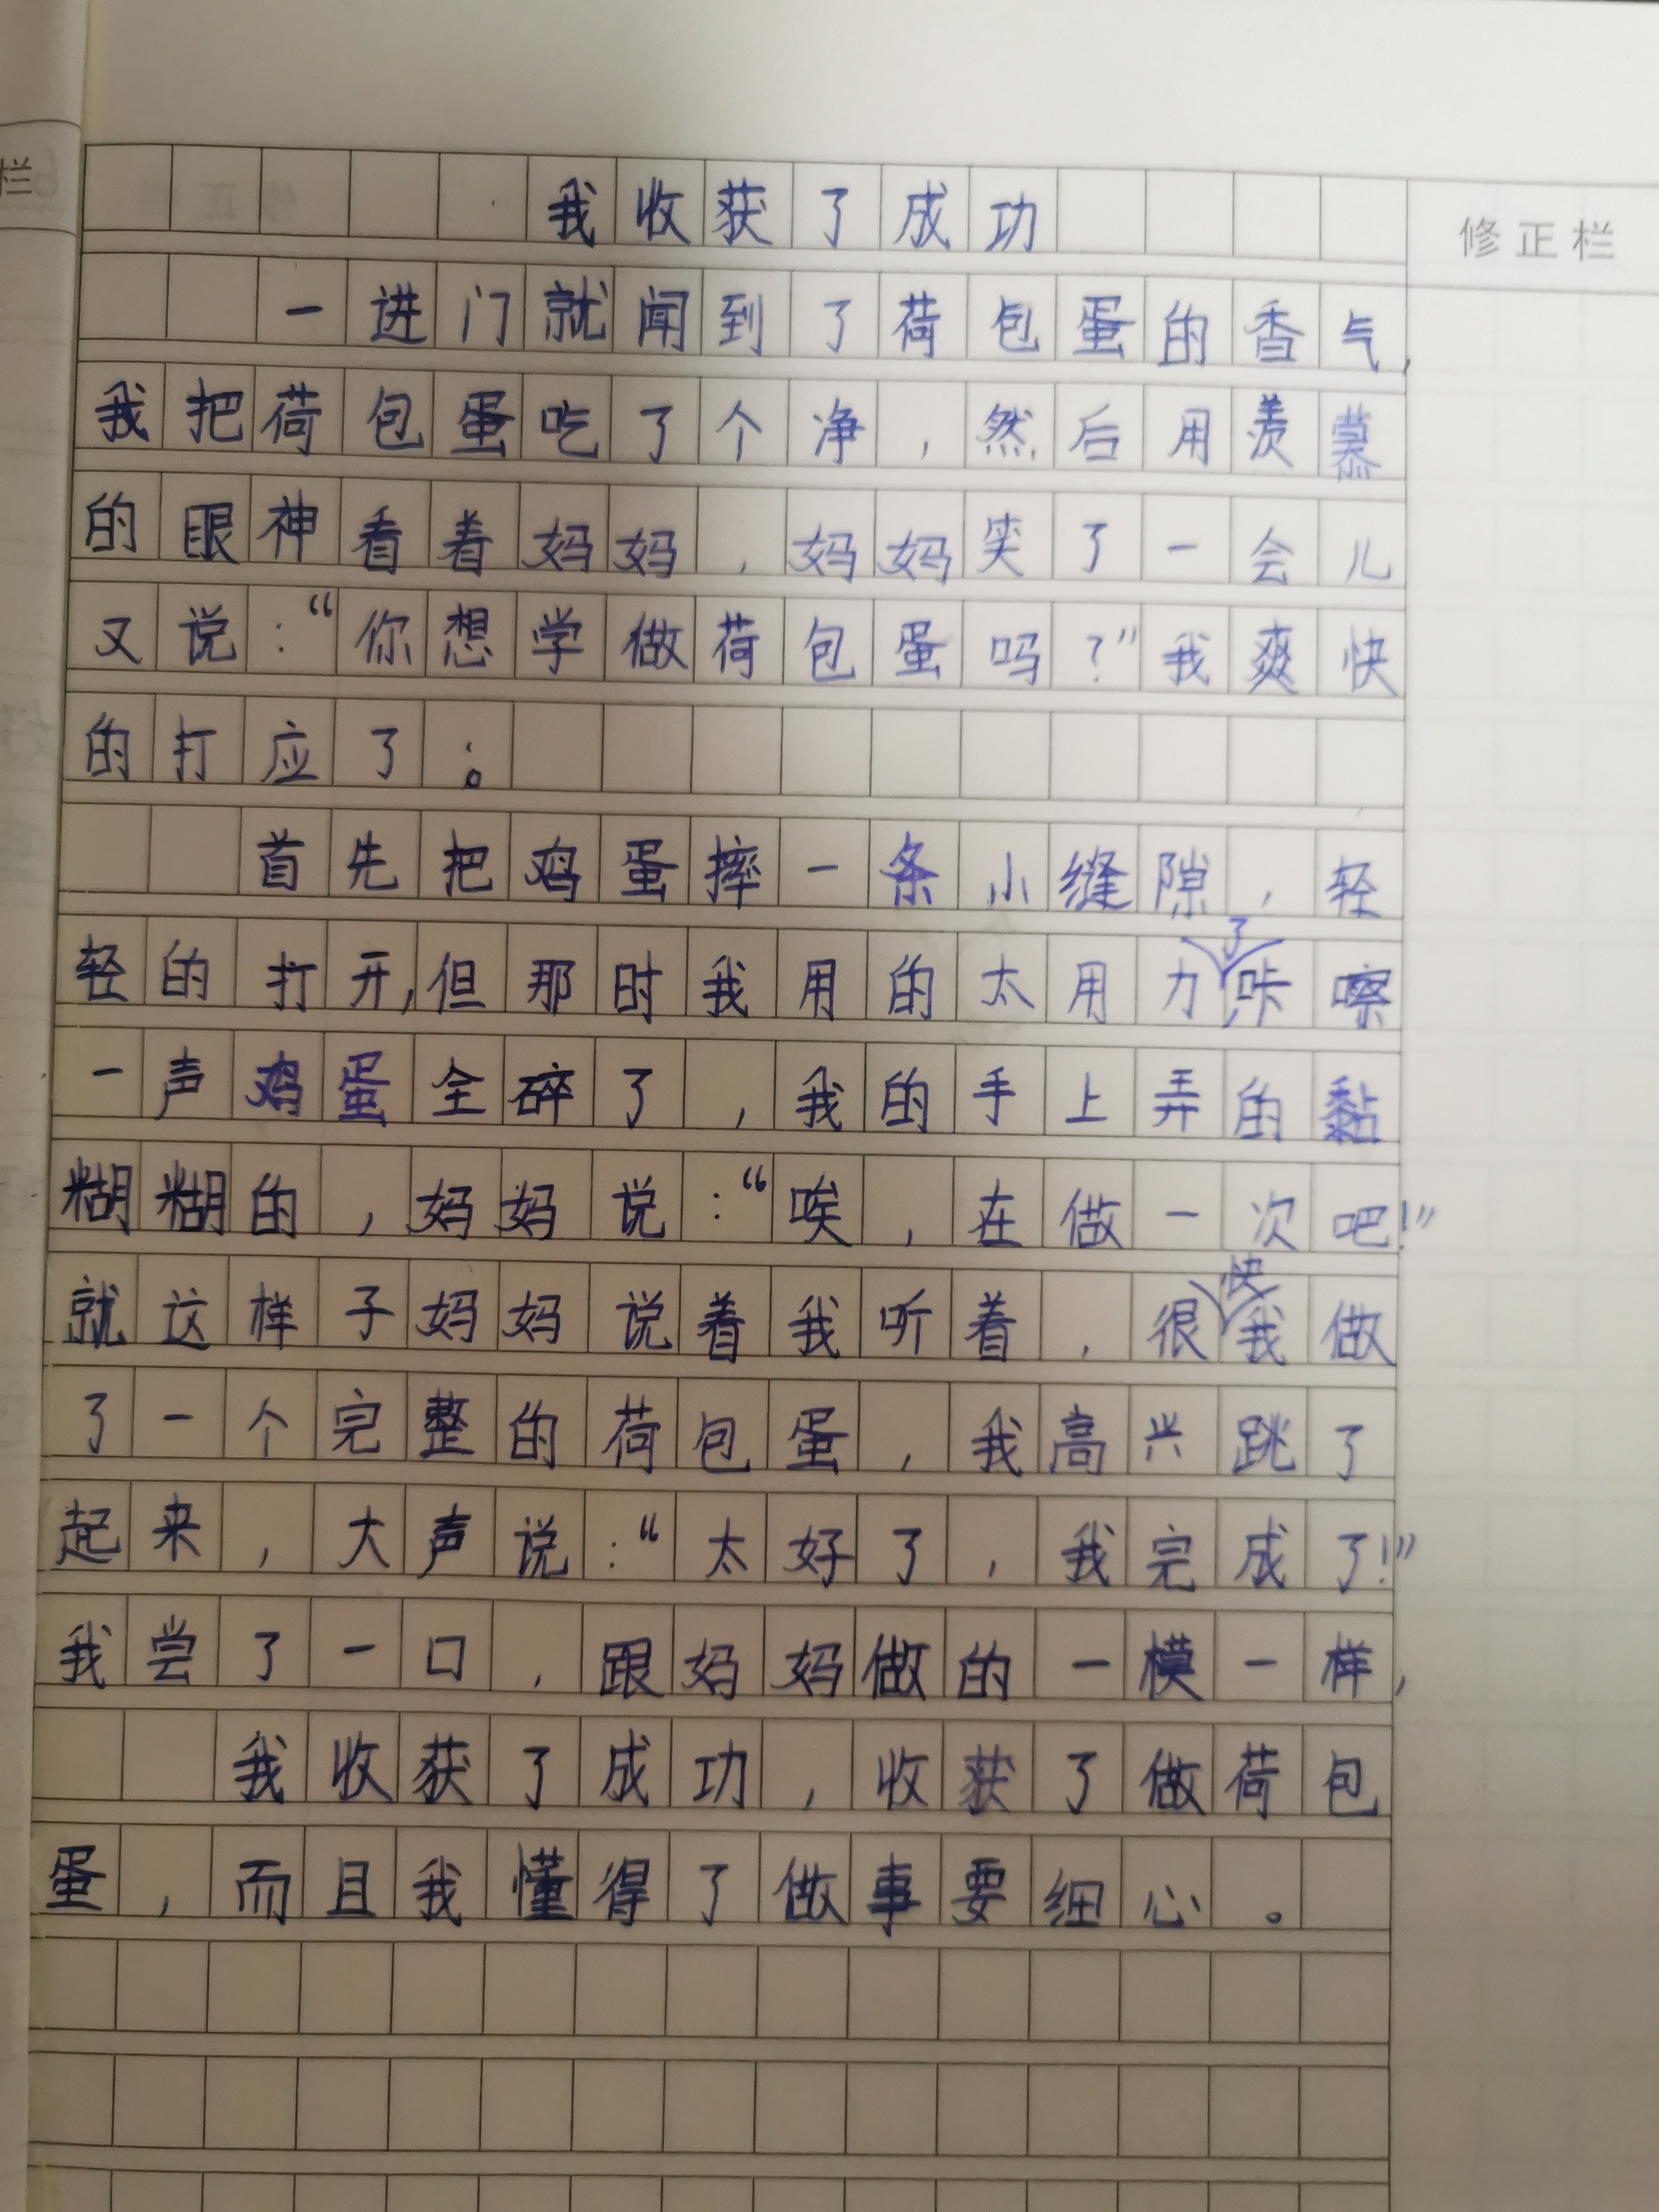 栏
修正栏
我收获了成功
一进门就闻到了荷包蛋的香气,
我把荷包蛋吃了个净,然后用羡慕
的眼神看着妈妈,妈妈笑了一会儿
又说:“你想学做荷包蛋吗?”我爽快
的打应了:。
首先把鸡蛋摔一条小缝隙,轻
轻的打开,但那时我用的太用力了,咔嚓
一声鸡蛋全碎了,我的手上弄的黏
糊糊的,妈妈说:“唉,在做一次吧!”
就这样子妈妈说着我听着,很快我做
了一个完整的荷包蛋,我高兴跳了
起来,大声说:“太好了,我完成了!”
我尝了一口,跟妈妈做的一模一样,
我收获了成功,收获了做荷包
蛋,而且我懂得了做事要细心。